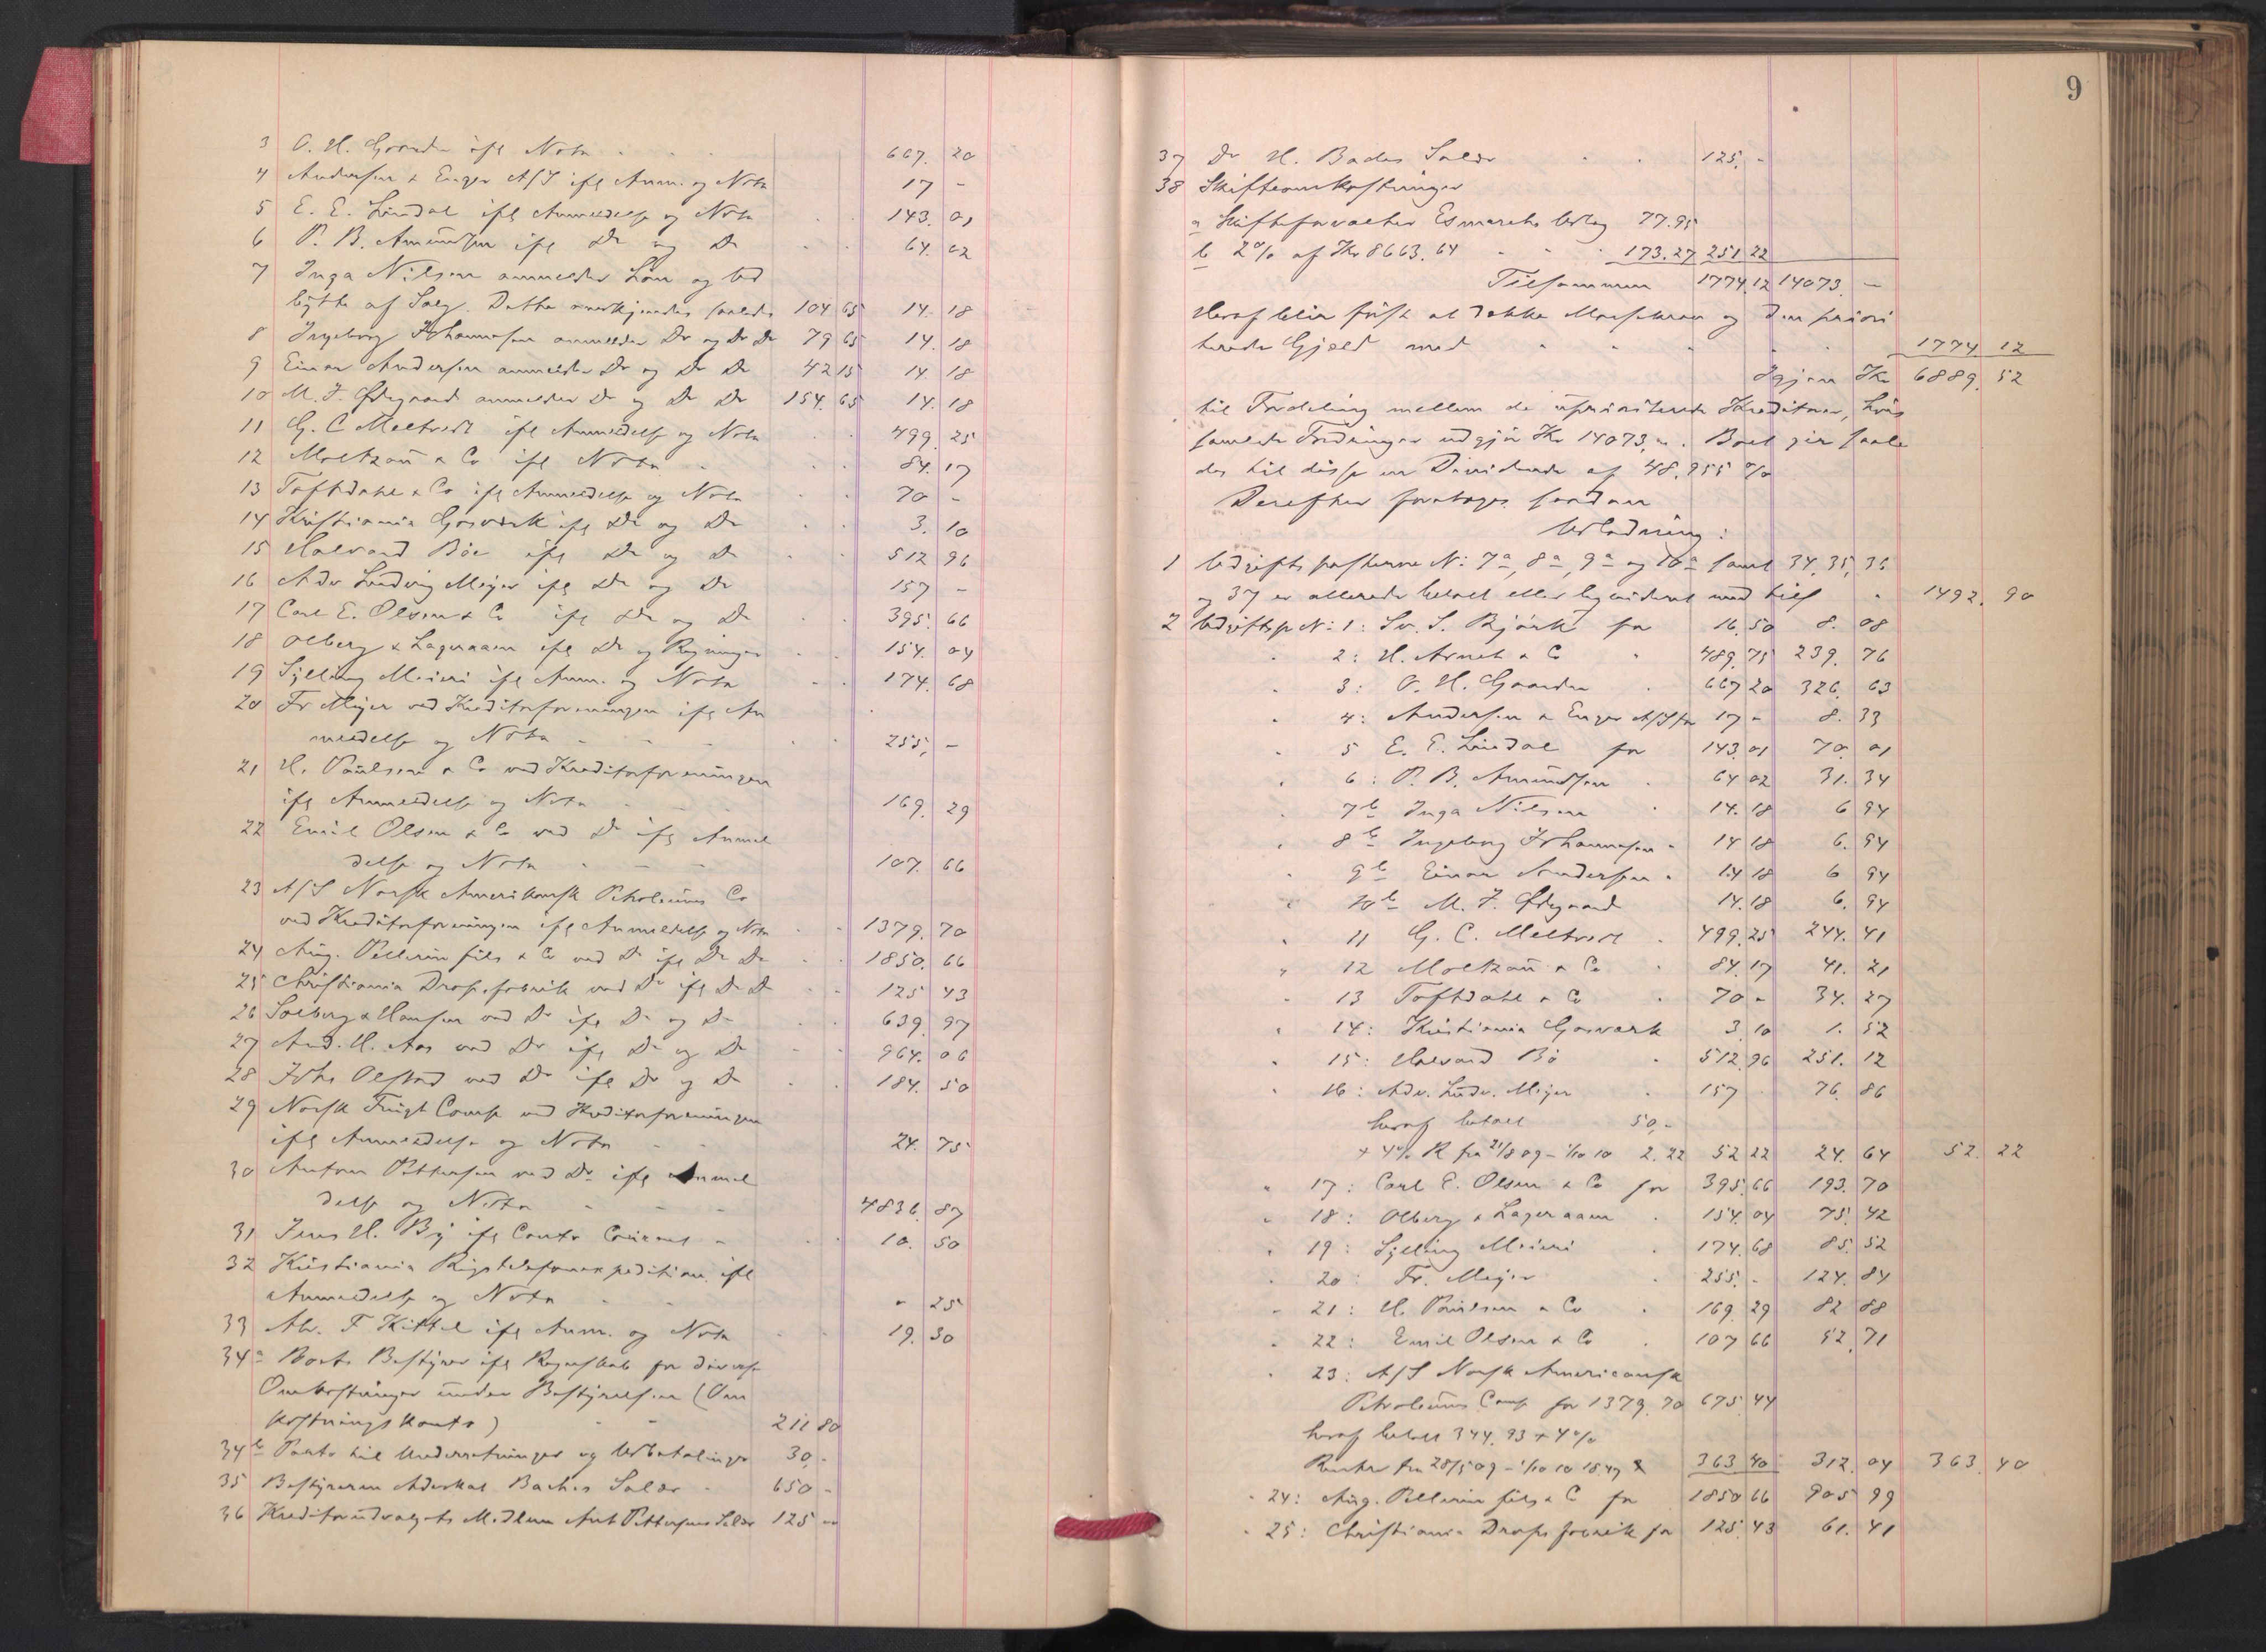 3 O. H. Gaarder ifl Nota 667. 20
4 Andersen & Enger A/S ifl Anm. og Nota 17 -
5 E. E. Lindal ifl Anmeldelse og Nota 143. 01
6 P. B. Amundsen ifl Do og Do 64. 02
7 Inga Nilsen anmelder Løn og Ud
bytte af Salg. Dette anerkjendes saaledes 104 65 14. 18
8 Ingeborg Johannesen anmelder Do og Do Do 79 65 14. 18
9 Einar Andersen anmelder Do og Do Do 42 15 14. 18
10 M. J. Ødegaard anmelder Do og Do Do 154. 65 14. 18
11 G. C Meltvedt ifl Anmeldelse og Nota 499. 25
12 Moltzau & Co ifl Nota 84. 17
13 Toftdahl & Co ifl Anmeldelse og Nota 70 -
14 Kristiania Gasværk ifl Do og Do 3. 10
15 Halvard Bøe ifl Do og Do 512 96
16 Adv Ludvig Meyer ifl Do og Do 157 -
17 Carl E. Olsen & Co ifl Do og Do 395. 66
18 Olberg & Lageraaen ifl Do og Regninger 154. 04
19 Sylling Meieri ifl Anm. og Nota 174. 68
20 Fr Meyer ved Kreditorforeningen ifl An
meldelse og Nota 255, -
21 H. Paulsen & Co ved Kreditorforeningen
ifl Anmeldelse og Nota 169. 29
22 Emil Olsen & Co ved Do ifl Anmel
delse og Nota 107. 66
23 A/S Norsk Amerikansk Petroleums Co
ved Kreditorforeningen ifl Anmeldelse og Nota 1379. 70
24 Aug. Pellerin fils & Co ved Do ifl Do Do 1850. 66
25 Christiania Dropsfabrik ved Do ifl Do Do 125 43
26 Solberg & Hansen ved Do ifl Do og Do 639. 97
27 And. H. Aas ved Do ifl Do og Do 964. 06
28 Johs Olstad ved Do ifl Do og Do 184. 50
29 Norsk Frugt Comp ved Kreditorforeningen
ifl Anmeldelse og Nota 24. 75
30 Anton Pettersen ved Do ifl Anmel
delse og Nota 4836. 87
31 Jens H. By ifl Conto Courant 10. 50
32 Kristiania Rigstelefonexpedition ifl
Anmeldelse og Nota - 25
33 Alv. F Kittel ifl Anm. og Nota 19. 30
34a Boets Bestyrer ifl Regnskab for diverse
Omkostninger under Bestyrelsen (Om
kostningskonto) 211 80
34b Porto til Underretninger og Udbetalinger 30, -
35 Bestyreren Advokat Baches Salær 650 -
36 Kreditorudvalgets Medlem Ant Pettersens Salær 125 -
9
37 Do H. Bades Salær 125, -
38 Skifteomkostninger
a Skifteforvalter Esmarchs Udlæg 77.95
b 2% af Kr 8663.64 173.27 251 22
Tilsammen 1774.12 14073. -
Heraf blir først at dække Massekrav og den priori
terede Gjæld med 1774 12
Igjen Kr 6889. 52
til Fordeling mellem de uprioriterede Kreditorer, hvis
samlede Fordringer udgjør Kr 14073,-. Boet gir saale
des til disse en Dividende af 48.955 %
Derefter foretoges saadan
Udlodning:
1 Udgiftsposterne N: 7a, 8a, 9a og 10a samt 34, 35, 36
og 37 er allerede betalt eller likvideret med tils 1492. 90
2 Udgiftsp N: 1: Sv. S. Bjørk for 16. 50 8. 08
" 2: H. Arnet & Co 489. 75 239. 76
" 3: O. H. Gaarder 667 20 326. 63
" 4: Andersen & Enger A/S for 17 - 8. 33
" 5 E. E. Lindal for 143 01 70. 01
" 6: P. B. Amundsen 64 02 31. 34
" 7b Inga Nilsen 14. 18 6 94
" 8b Ingeborg Johannesen 14 18 6. 94
" 9b Einar Andersen 14 18 6 94
" 10b M. J. Ødegaard 14. 18 6. 94
" 11 G. C. Meltvedt 499. 25 244. 41
" 12 Moltzau & Co 84. 17 41. 21
" 13 Toftdahl & Co 70 - 34. 27
" 14: Kristiania Gasværk 3. 10 1. 52
" 15: Halvard Bø 512 96 251. 12
" 16: Adv. Ludv. Meyer 157 76. 86
heraf betalt 50,-
+ 4% R fra 21/8 09 - 1/10 10 2.22 52 22 24. 64 52. 22
" 17: Carl E. Olsen & Co for 395. 66 193. 70
" 18: Olberg & Lageraaen 154. 04 75. 42
" 19: Sylling Meieri 174. 68 85. 52
" 20: Fr. Meyer 255. - 124. 84
" 21: H. Paulsen & Co 169. 29 82 88
" 22: Emil Olsen & Co 107 66 52. 71
" 23: A/S Norsk Americansk
Petroleums Comp for 1379. 70 675. 44
heraf betalt 344.93 + 4%
Renter fra 28/5 09 - 1/10 10 18 47 363 40 312. 04 363. 40
" 24: Aug. Pellerin fils & C for 1850 66 905 99
" 25: Christiania Drops fabrik for 125. 43 61. 41